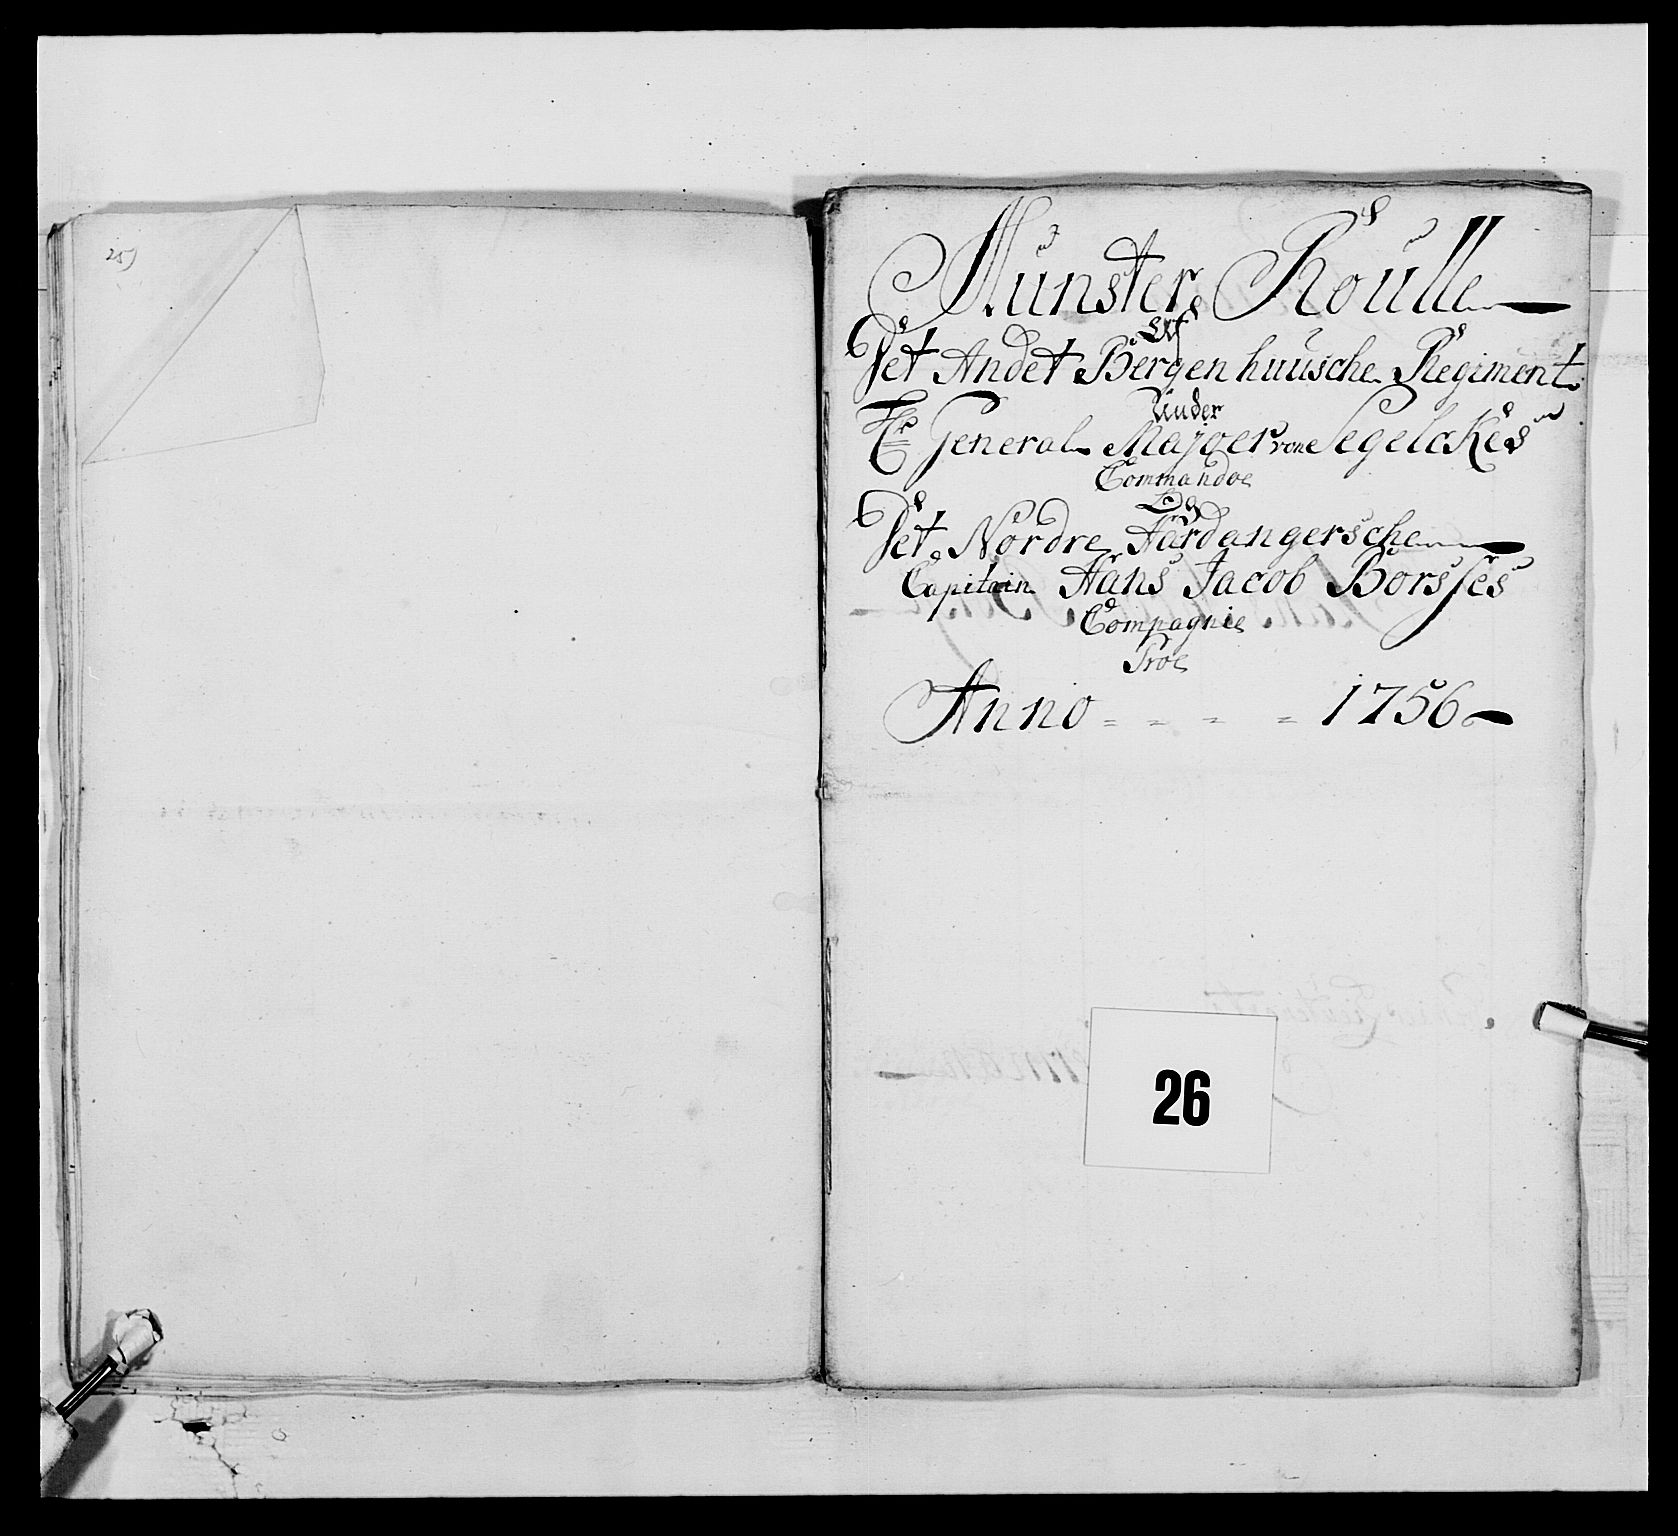 257
Münster Roulle
Af
Det Andet Bergenhuusche Regiment
Under
Hr General Majoer von Segelckes
Commando
Og
Det Nordre Hardangersche
Capitain Hans Jacob Borsses
Compagnie
Pro
Anno = = = = 1756
26